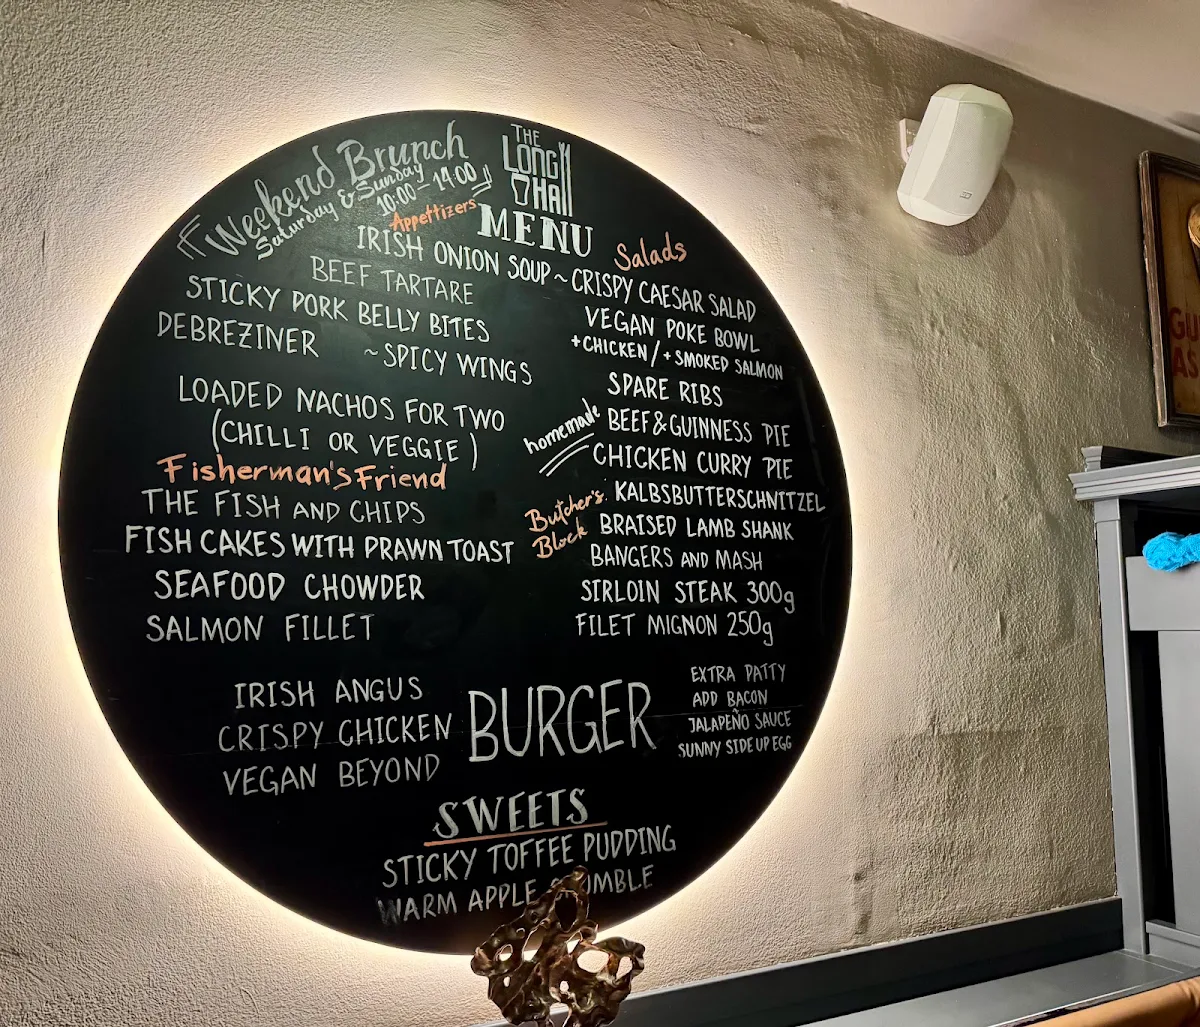 Weekend Brunch
Saturday & Sunday
10:00 - 14:00
THE
LONG
HALL
MENU
Appettizers
IRISH ONION SOUP ~
BEEF TARTARE
STICKY PORK BELLY BITES
DEBREZINER ~ SPICY WINGS
LOADED NACHOS FOR TWO
(CHILLI OR VEGGIE)
Fisherman's Friend
THE FISH AND CHIPS
FISH CAKES WITH PRAWN TOAST
SEAFOOD CHOWDER
SALMON FILLET
Salads
CRISPY CAESAR SALAD
VEGAN POKE BOWL
+CHICKEN / + SMOKED SALMON
SPARE RIBS
homemade
BEEF & GUINNESS PIE
CHICKEN CURRY PIE
Butcher's
Block
KALBSBUTTERSCHNITZEL
BRAISED LAMB SHANK
BANGERS AND MASH
SIRLOIN STEAK 300g
FILET MIGNON 250g
BURGER
IRISH ANGUS
CRISPY CHICKEN
VEGAN BEYOND
EXTRA PATTY
ADD BACON
JALAPEÑO SAUCE
SUNNY SIDE UP EGG
SWEETS
STICKY TOFFEE PUDDING
WARM APPLE